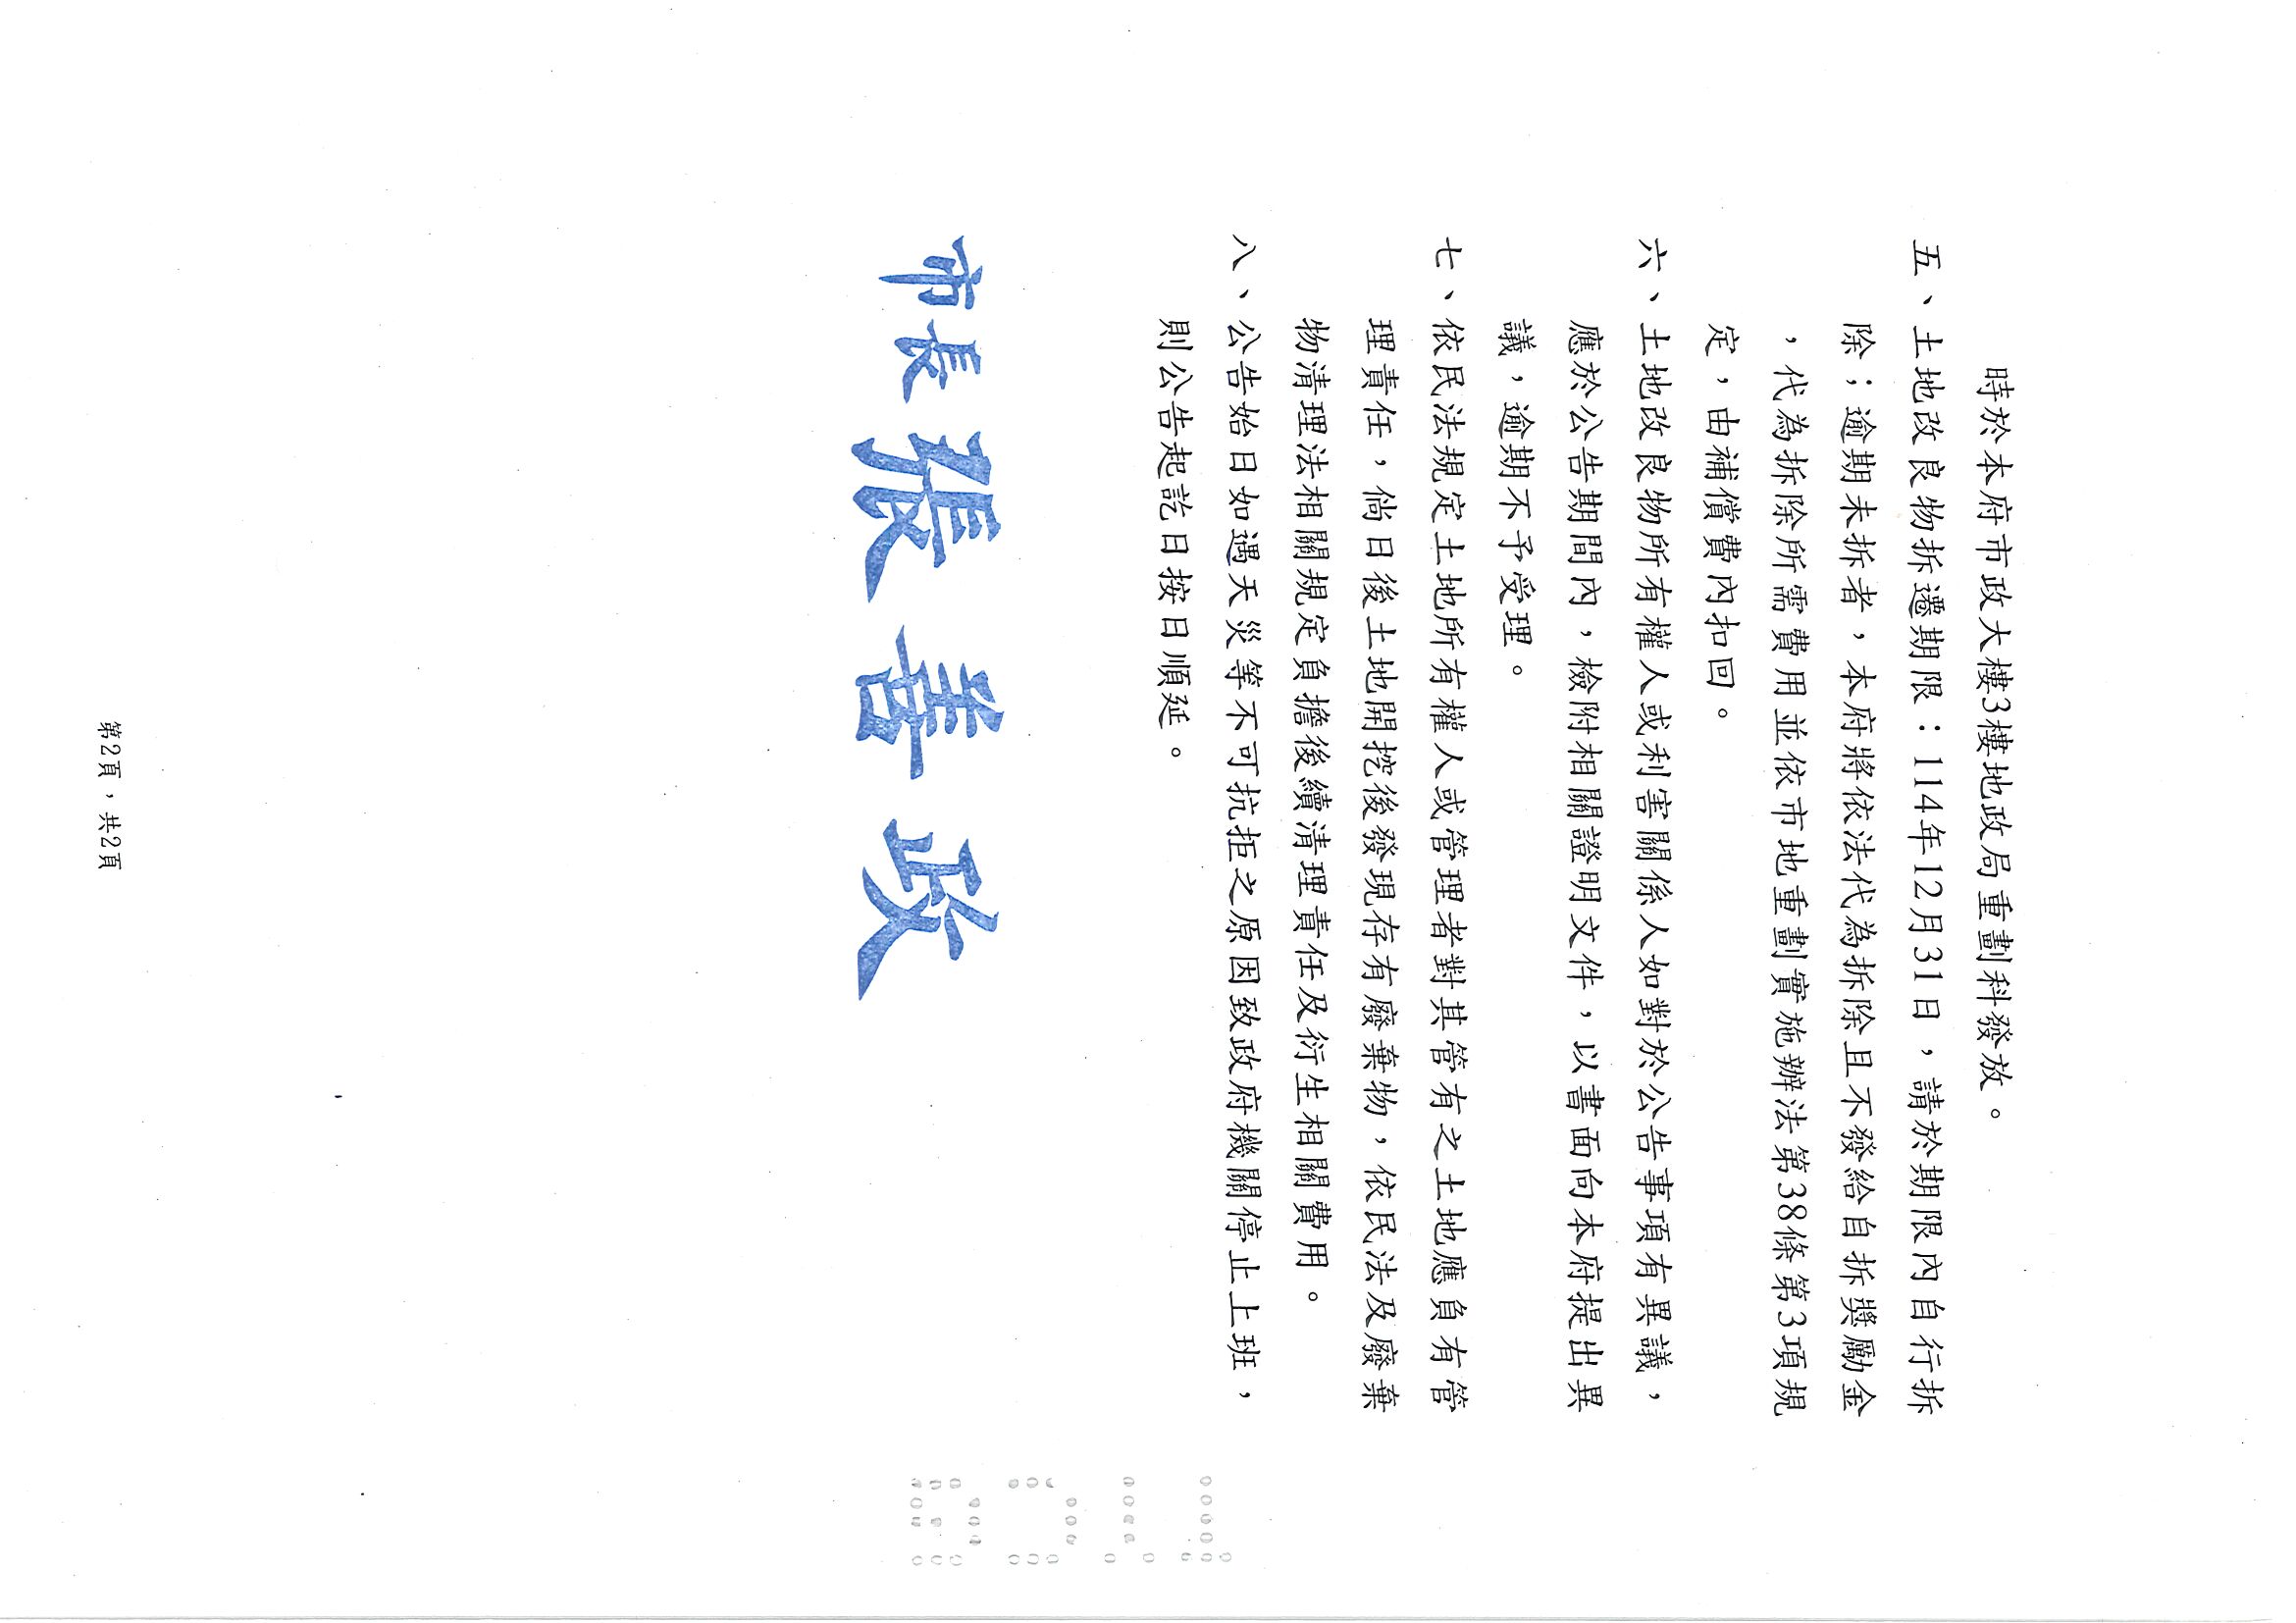 時於本府市政大樓3樓地政局重劃科發放。
五、土地改良物拆遷期限：114年12月31日，請於期限內自行拆
除；逾期未拆者，本府將依法代為拆除且不發給自拆獎勵金
，代為拆除所需費用並依市地重劃實施辦法第38條第3項規
定，由補償費內扣回。
六、土地改良物所有權人或利害關係人如對於公告事項有異議，
應於公告期間內，檢附相關證明文件，以書面向本府提出異
議，逾期不予受理。
七、依民法規定土地所有權人或管理者對其管有之土地應負有管
理責任，倘日後土地開挖後發現存有廢棄物，依民法及廢棄
物清理法相關規定負擔後續清理責任及衍生相關費用。
八、公告始日如遇天災等不可抗拒之原因致政府機關停止上班，
則公告起訖日按日順延。
市長 張善政
第2頁，共2頁